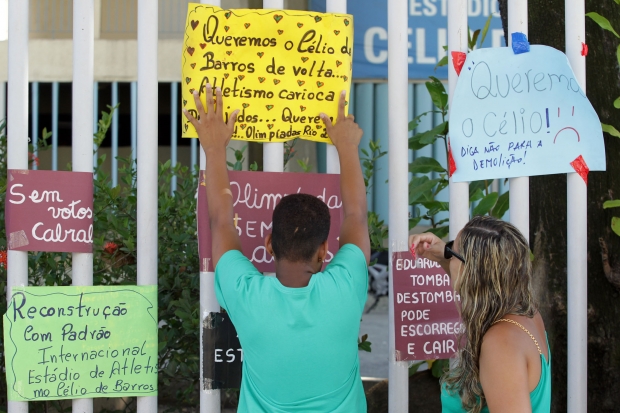 ESTÁDIO
CEL
Queremos o Célio de
Barros de volta...
Atletismo carioca
Olimpíadas Rio
Queremo
o Célio!
DIGA NÃO PARA A
DEMOLIÇÃO!
Sem votos
Cabral
Olimpíada
SEM
EDUARDO
TOMBA
DESTOMBA
PODE
ESCORREGA
E CAIR
Reconstrução
Com Padrão
Internacional
Estádio de Atletis
mo Célio de Barros
EST